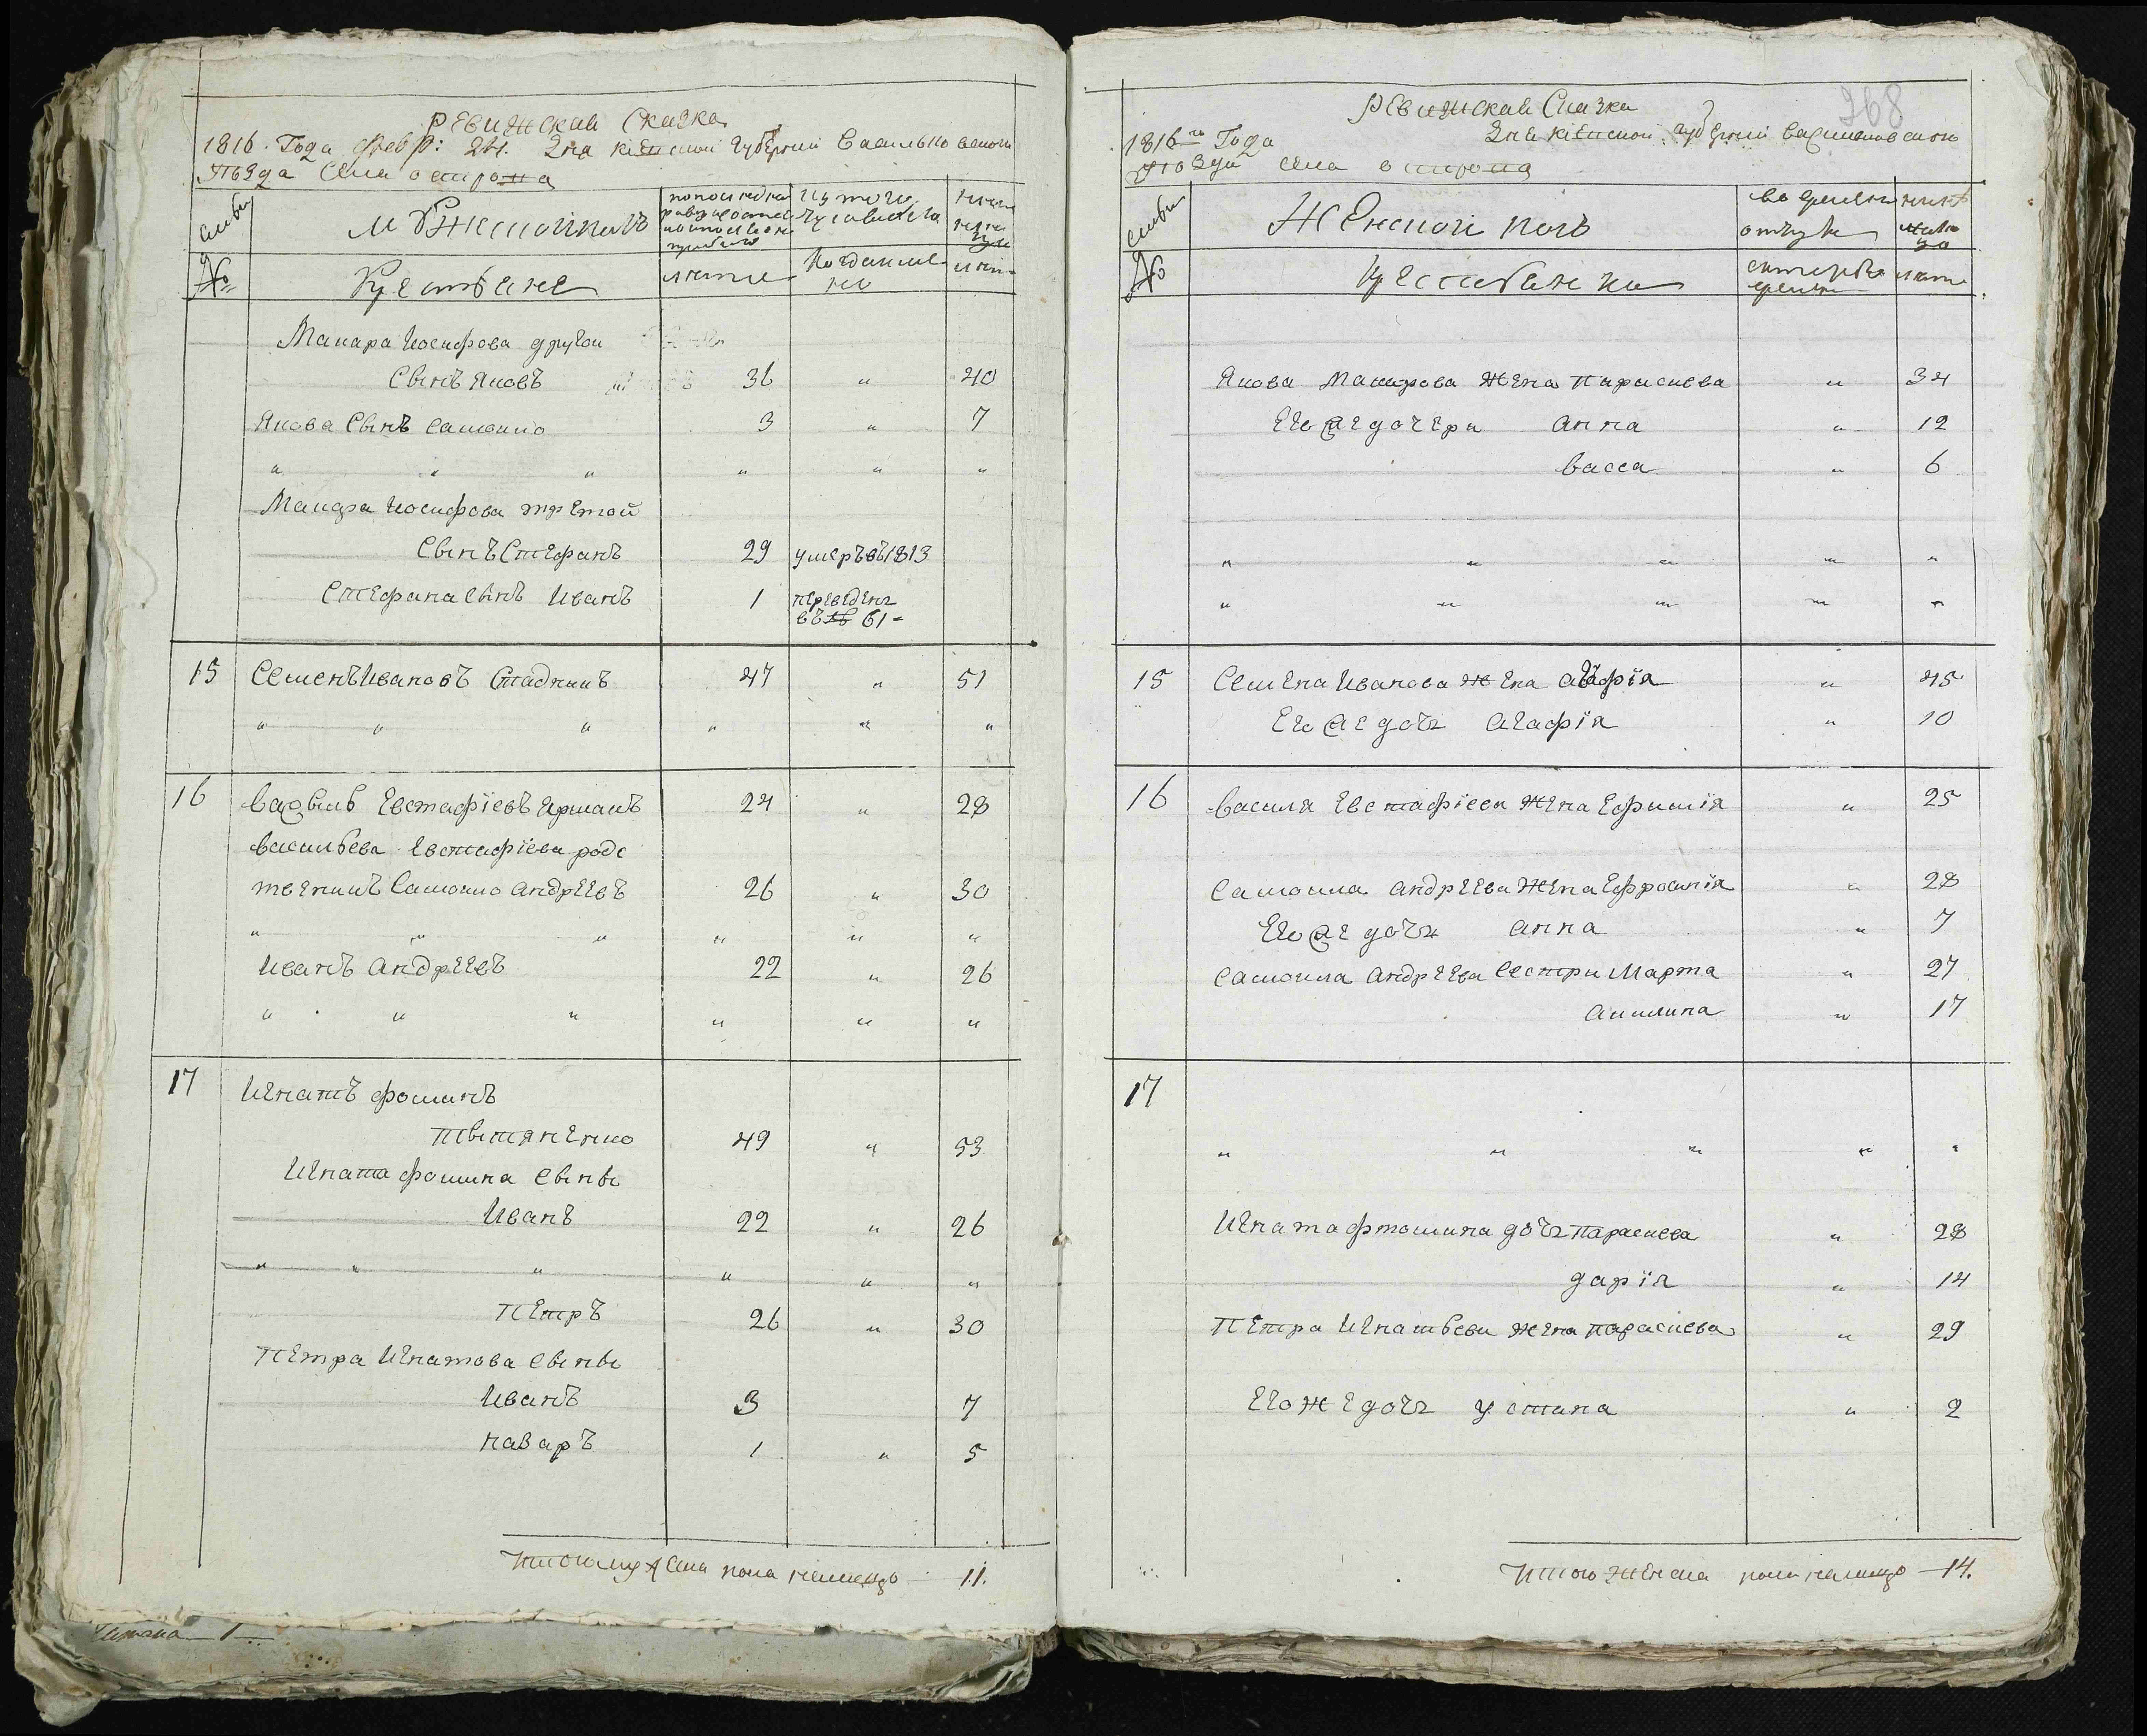 Ревижская Сказка
1816. Года февр: 24. Дня кіевской губерній васильковского
Повзда Села острова
семьи
Мужескои полъ
No
Крестьяне
лета
Когда имен
но
лета
Макара иосифова другои
Сынъ Яковъ 36 " 40
Якова Сынъ Самоило 3 " 7
" " " " " "
Макара иосифова третой
Сынъ Стефанъ 29 умеръ въ 1813
Стефана сынъ иванъ 1 переведенъ
въ № 61 -
15 Семенъ ивановъ Стадникъ 47 " 51
" " " " " "
16 василь Евстафіевъ Ермакъ 24 " 28
васильева Евстафіева родс
твеникъ Самоило андреевъ 26 " 30
" " " " " "
иванъ андреевъ 22 " 26
" " " " " "
17 игнатъ фоминъ
тытяненко 49 " 53
игната фомина сыны
иванъ 22 " 26
" " " " " "
петръ 26 " 30
петра игнатова сыны
иванъ 3 7
назаръ 1 " 5
итого муж Ска пола налицо 11.
1
268
Ревижская Сказка
1816го Года Дня кіевской губерній васильковского
повзда села острова
семьи
Женскои полъ
во времен
отлуке
ныне
налицо
No
Крестьянки
с которого
времени
лета
Якова Макарова жена параскева " 34
Его же дочери анна " 12
васса " 6
" " " " "
" " " " "
15 Семена иванова жена агафія " 45
Его же дочь агафія " 10
16 василя Евстафіева жена Ефимія " 25
самоила андреева жена Ефросинія " 28
Его же дочь анна " 7
самоила андреева сестри Марта " 27
акилина " 17
17
" " " " "
игната фтомина дочь параскева " 28
дарія " 14
петра игнатьева жена параскева " 29
Его же дочь устина " 2
итого женска пола налицо 14.